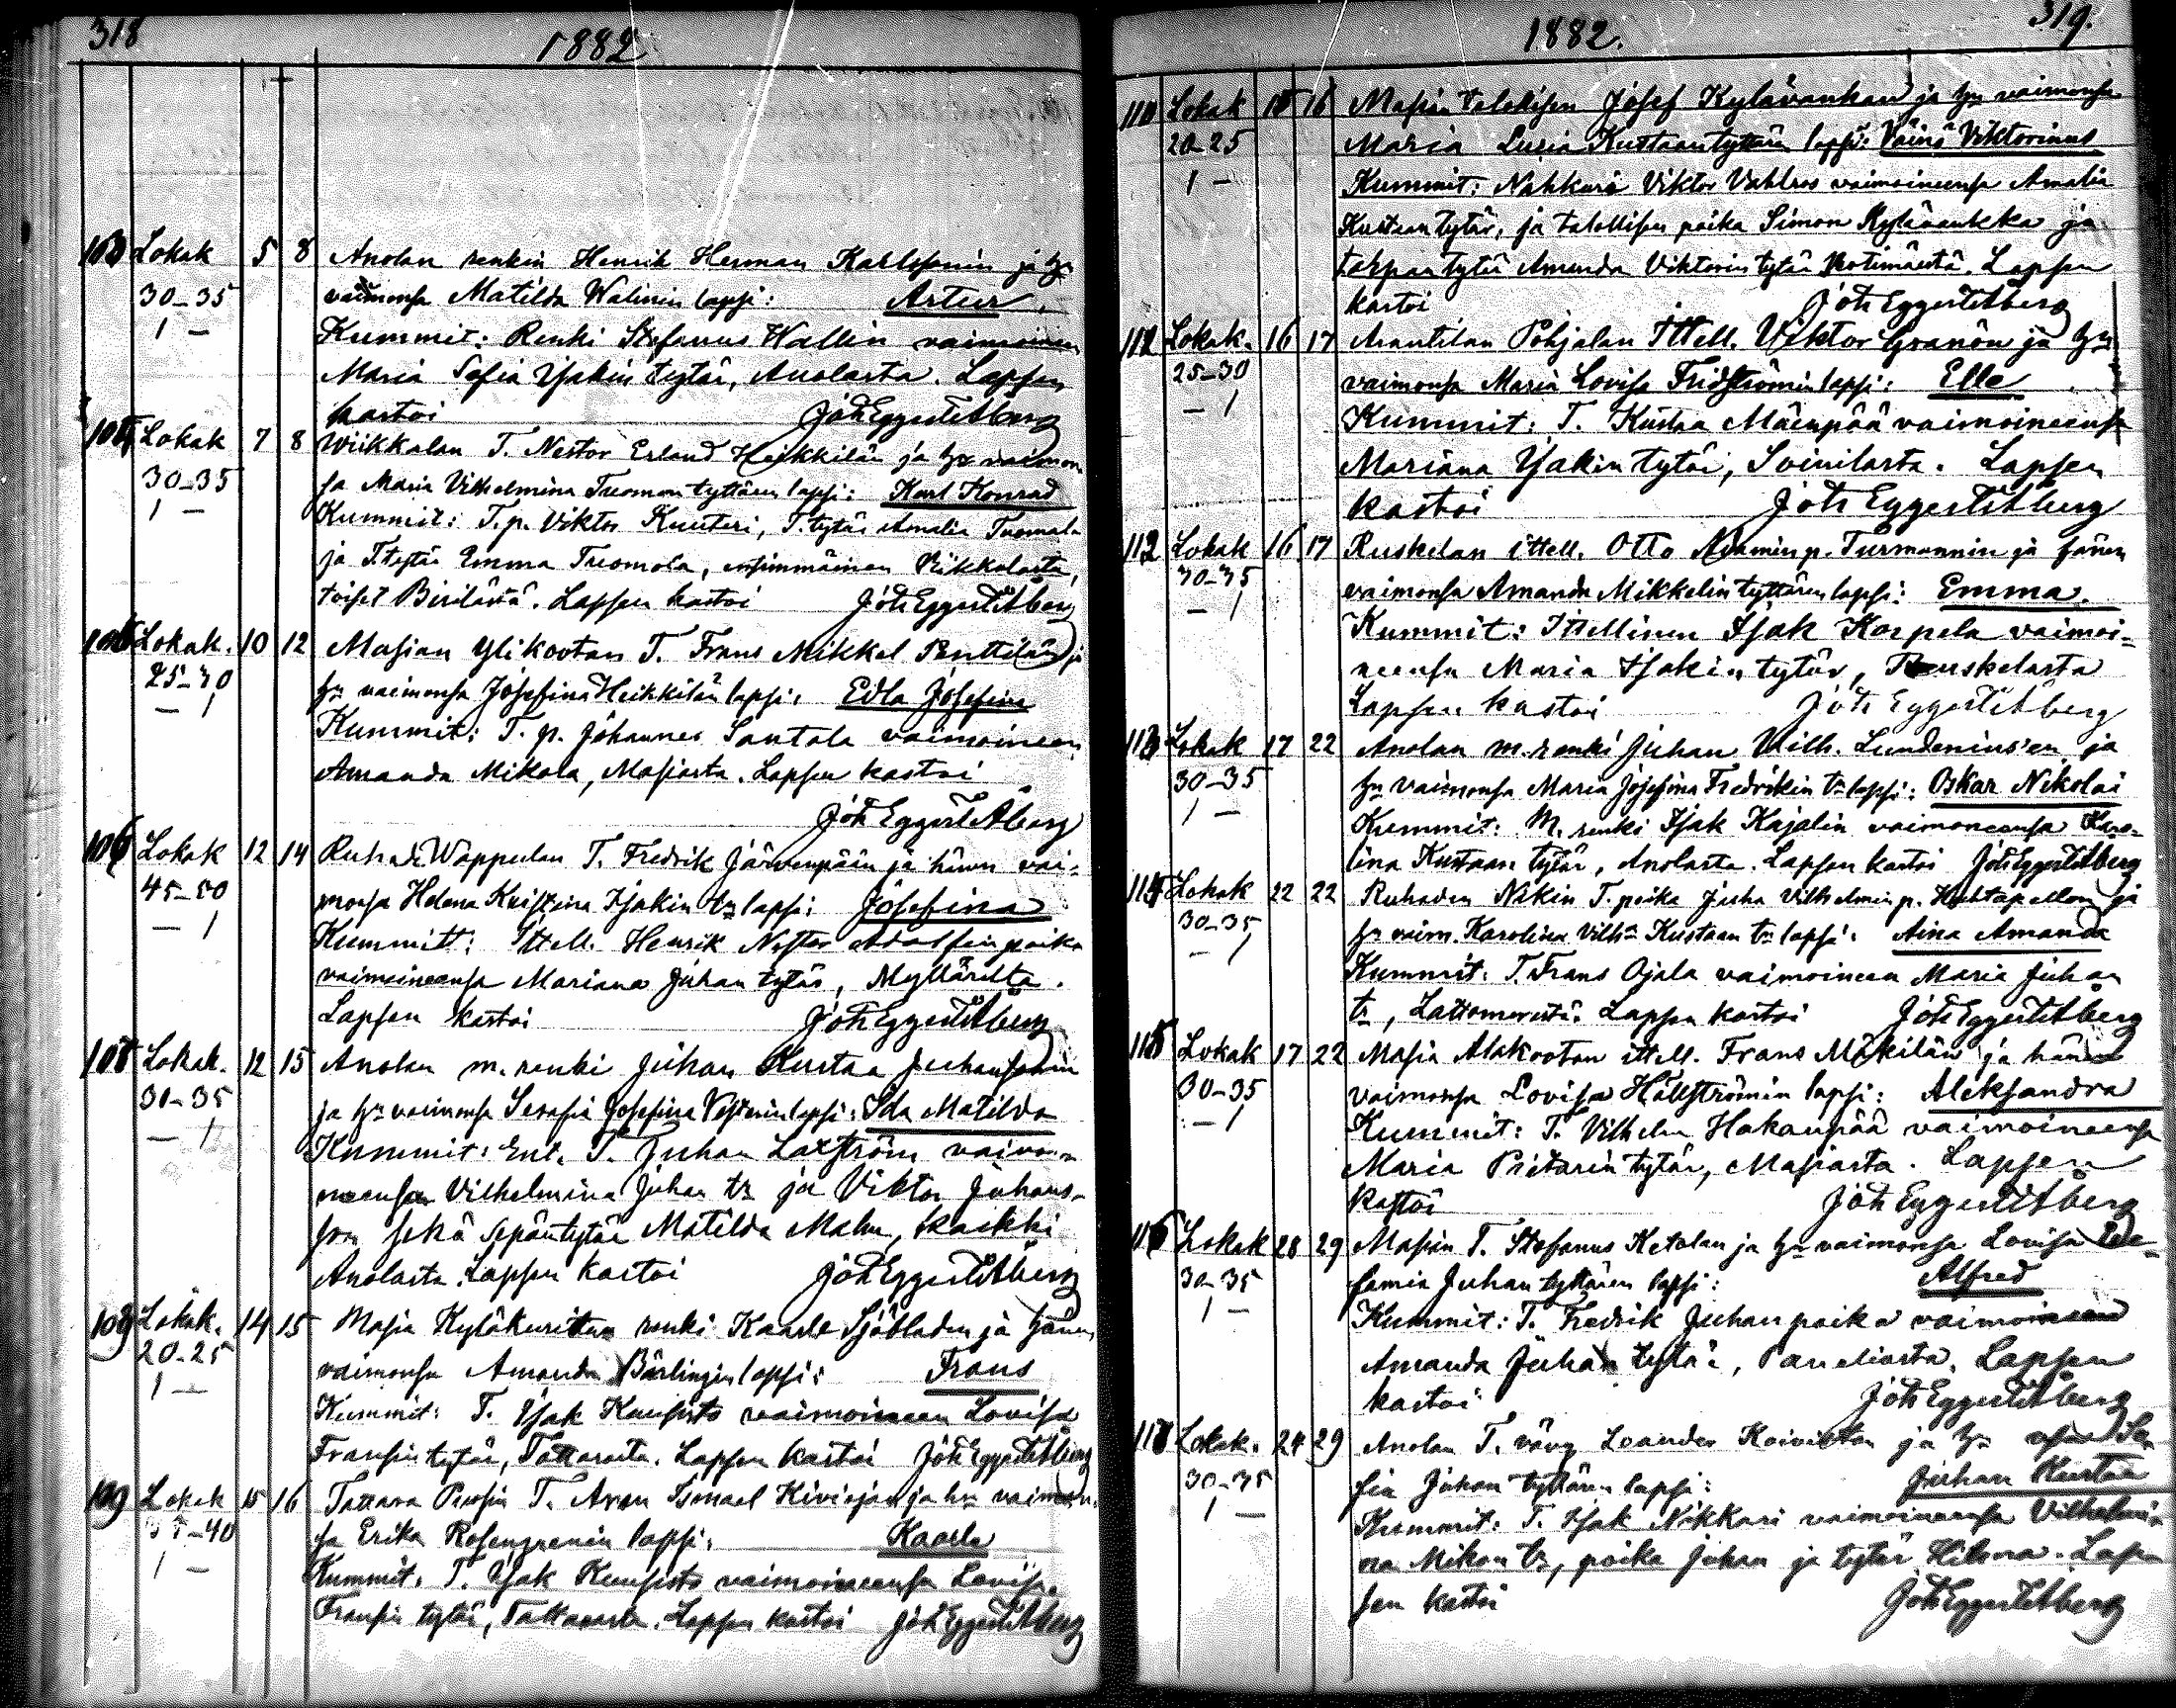 318
1882
103 Lokak 5 8 Anolan renkin Henrik Herman Karlssonin ja hn
30-35 vaimonsa Matilda Walinin lapsi: Artur.
1 — Kummit: Renki Stefanus Wallin vaimoineen
Maria Sofia Isakin tytär, Anolasta. Lapsen
kastoi Joh Eggert Åberg
104 Lokak 7 8 Wiikkalan T. Nestor Erland Heikkilän ja hn vaimon
30-35 sa Maria Vilhelmina Tuomontyttären lapsi: Karl Konrad
1 — Kummit: T. p. Viktor Knuteri, T. tytär Amalia Tuomola
ja T. tytär Emma Tuomola, ensimmäinen Viikkalasta,
toiset Birilästä. Lapsen kastoi Joh Eggert Åberg
105 Lokak. 10 12 Masian Ylikootan T. Frans Mikkel Penttilän ja
25-30 hn vaimonsa Josefina Heikkilän lapsi: Edla Josefina
— 1 Kummit: T. p. Johannes Santala vaimoineen
Amanda Mikola, Masiasta. Lapsen kastoi
Joh Eggert Åberg
106 Lokak 12 14 Ruhade Wappulan T. Fredrik Järvenpään ja hänen vai-
45-50 monsa Helena Kristina Isakin tn lapsi: Josefina
— 1 Kummit: Ittell. Henrik Nestor Adolfin poika
vaimoineensa Mariana Juhan tytär, Mylläriltä.
Lapsen kastoi Joh Eggert Åberg
107 Lokak. 12 15 Anolan m. renki Juhan Kustaa Juhanssonin
30-35 ja hn vaimonsa Serafia Josefina lapsi: Ida Matilda
— 1 Kummit: Ent. T. Juhan Laxström vaimoi-
neensa Vilhelmina Juhan tr ja Viktor Juhans-
son sekä sepäntytär Matilda Malm, kaikki
Anolasta. Lapsen kastoi Joh Eggert Åberg
108 Lokak. 14 15 Masia Kyläkuritun renki Kaarle Sjöbladen ja hänen
20-25 vaimonsa Amanda Bärlingin lapsi: Frans
1 — Kummit: T. Isak Kuusisto vaimoineen Lovisa
Fransin tytär, Tattarasta. Lapsen kastoi Joh Eggert Åberg
109 Lokak 15 16 Tattara T. Aron Ismael Kiviojan ja hn vaimon-
35-40 sa Erika Rosengrenin lapsi: Kaarle
1 — Kummit: T. Isak Kuusisto vaimoineensa Lovisa
Fransin tytär, Tattarasta. Lapsen kastoi Joh Eggert Åberg
319.
1882.
110 Lokak 15 16 Masian talollisen Josef Kylävankan ja hn vaimonsa
20-25 Maria Lusia Kustaantyttären lapsi: Väinö Viktorinus
1 — Kummit: Nahkuri Viktor Vahlros vaimoineensa Amalia
Kustaan tytär, ja talollisen poika Simon Kylävankka ja
torpantytär Amanda Viktorin tytär Lapsen
kastoi Joh Eggert Åberg
111 Lokak. 16 17 Anantilan Pohjalan Ittell. Viktor Granön ja hn
25-30 vaimonsa Maria Lovisa Fridströmin lapsi: Elle
— 1 Kummit: T. Kustaa Mäenpää vaimoineensa
Mariana Isakin tytär, Soinilasta. Lapsen
kastoi Joh Eggert Åberg
112 Lokak 16 17 Ruskelan ittell. Otto p. Turmannin ja hänen
30-35 vaimonsa Amanda Mikkelin tyttären lapsi: Emma.
— 1 Kummit: Ittellinen Isak Korpela vaimoi-
neensa Maria Isakin tytär, Ruskelasta
Lapsen kastoi Joh Eggert Åberg
113 Lokak 17 22 Anolan m. renki Juhan Vilh. Lundenius'en ja
30-35 hn vaimonsa Maria Josefina Fredrikin tn lapsi: Oskar Nikolai
1 — Kummit: M. renki Isak Kajalin vaimoneensa Karo-
lina Kustaan tytär, Anolasta. Lapsen kastoi Joh Eggert Åberg
114 Lokak 22 22 Ruhaden Nikin T. poika Juha Vilhelmin p. Kuhtapellon ja
30-35 hn vaim. Karolina Vilhn Kustaan tn lapsi: Aina Amanda
— 1 Kummit: T. Frans Ojala vaimoineen Maria Juhan
tr, Lattomerestä. Lapsen kastoi Joh Eggert Åberg
115 Lokak 17 22 Masia Alakootan ittell. Frans Mäkilän ja hänen
30-35 vaimonsa Lovisa Hällströmin lapsi: Aleksandra
— 1 Kummit: T. Vilhelm Hakanpää vaimoineensa
Maria Pietarin tytär, Masiasta. Lapsen
kastoi Joh Eggert Åberg
116 Lokak 28 29 Masian T. Stefanus Ketolan ja hn vaimonsa Lovisa Eu-
30-35 femia Juhan tyttären lapsi: Alfred
1 — Kummit: T. Fredrik Juhan poika vaimoineen
Amanda Juhan tytär, Paneliasta. Lapsen
kastoi Joh Eggert Åberg
117 Lokak. 24 29 Anolan T. vävy Leander Koiviston ja hn So-
30-35 fia Juhan tyttären lapsi: Juhan Kustaa
1 — Kummit: T. Isak Nikkari vaimoineensa Vilhelmii-
na Mikon tr, poika Juhan ja tytär Hilma. Lap-
sen kastoi Joh Eggert Åberg